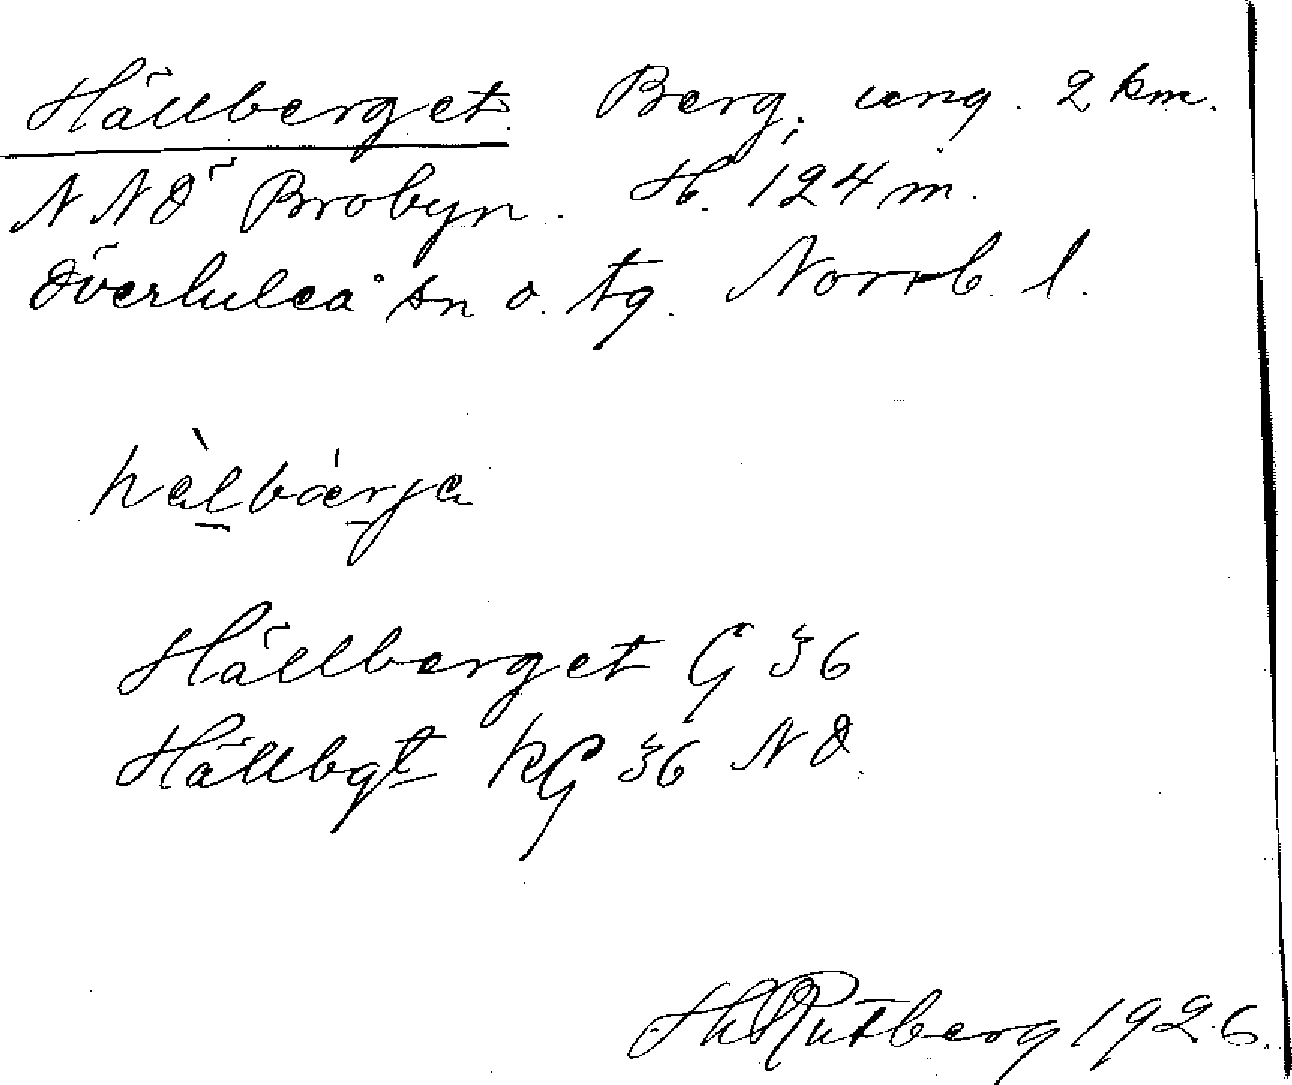 Hällberget. Berg, ung. 2 km.
NNÖ Brobyn. H. 124 m.
Överluleå sn o. tg. Norrb. l.
hàlbárja
Hällberget G 36
Hällbgt KG 36 NÖ.
Hd. Rutberg 1926.